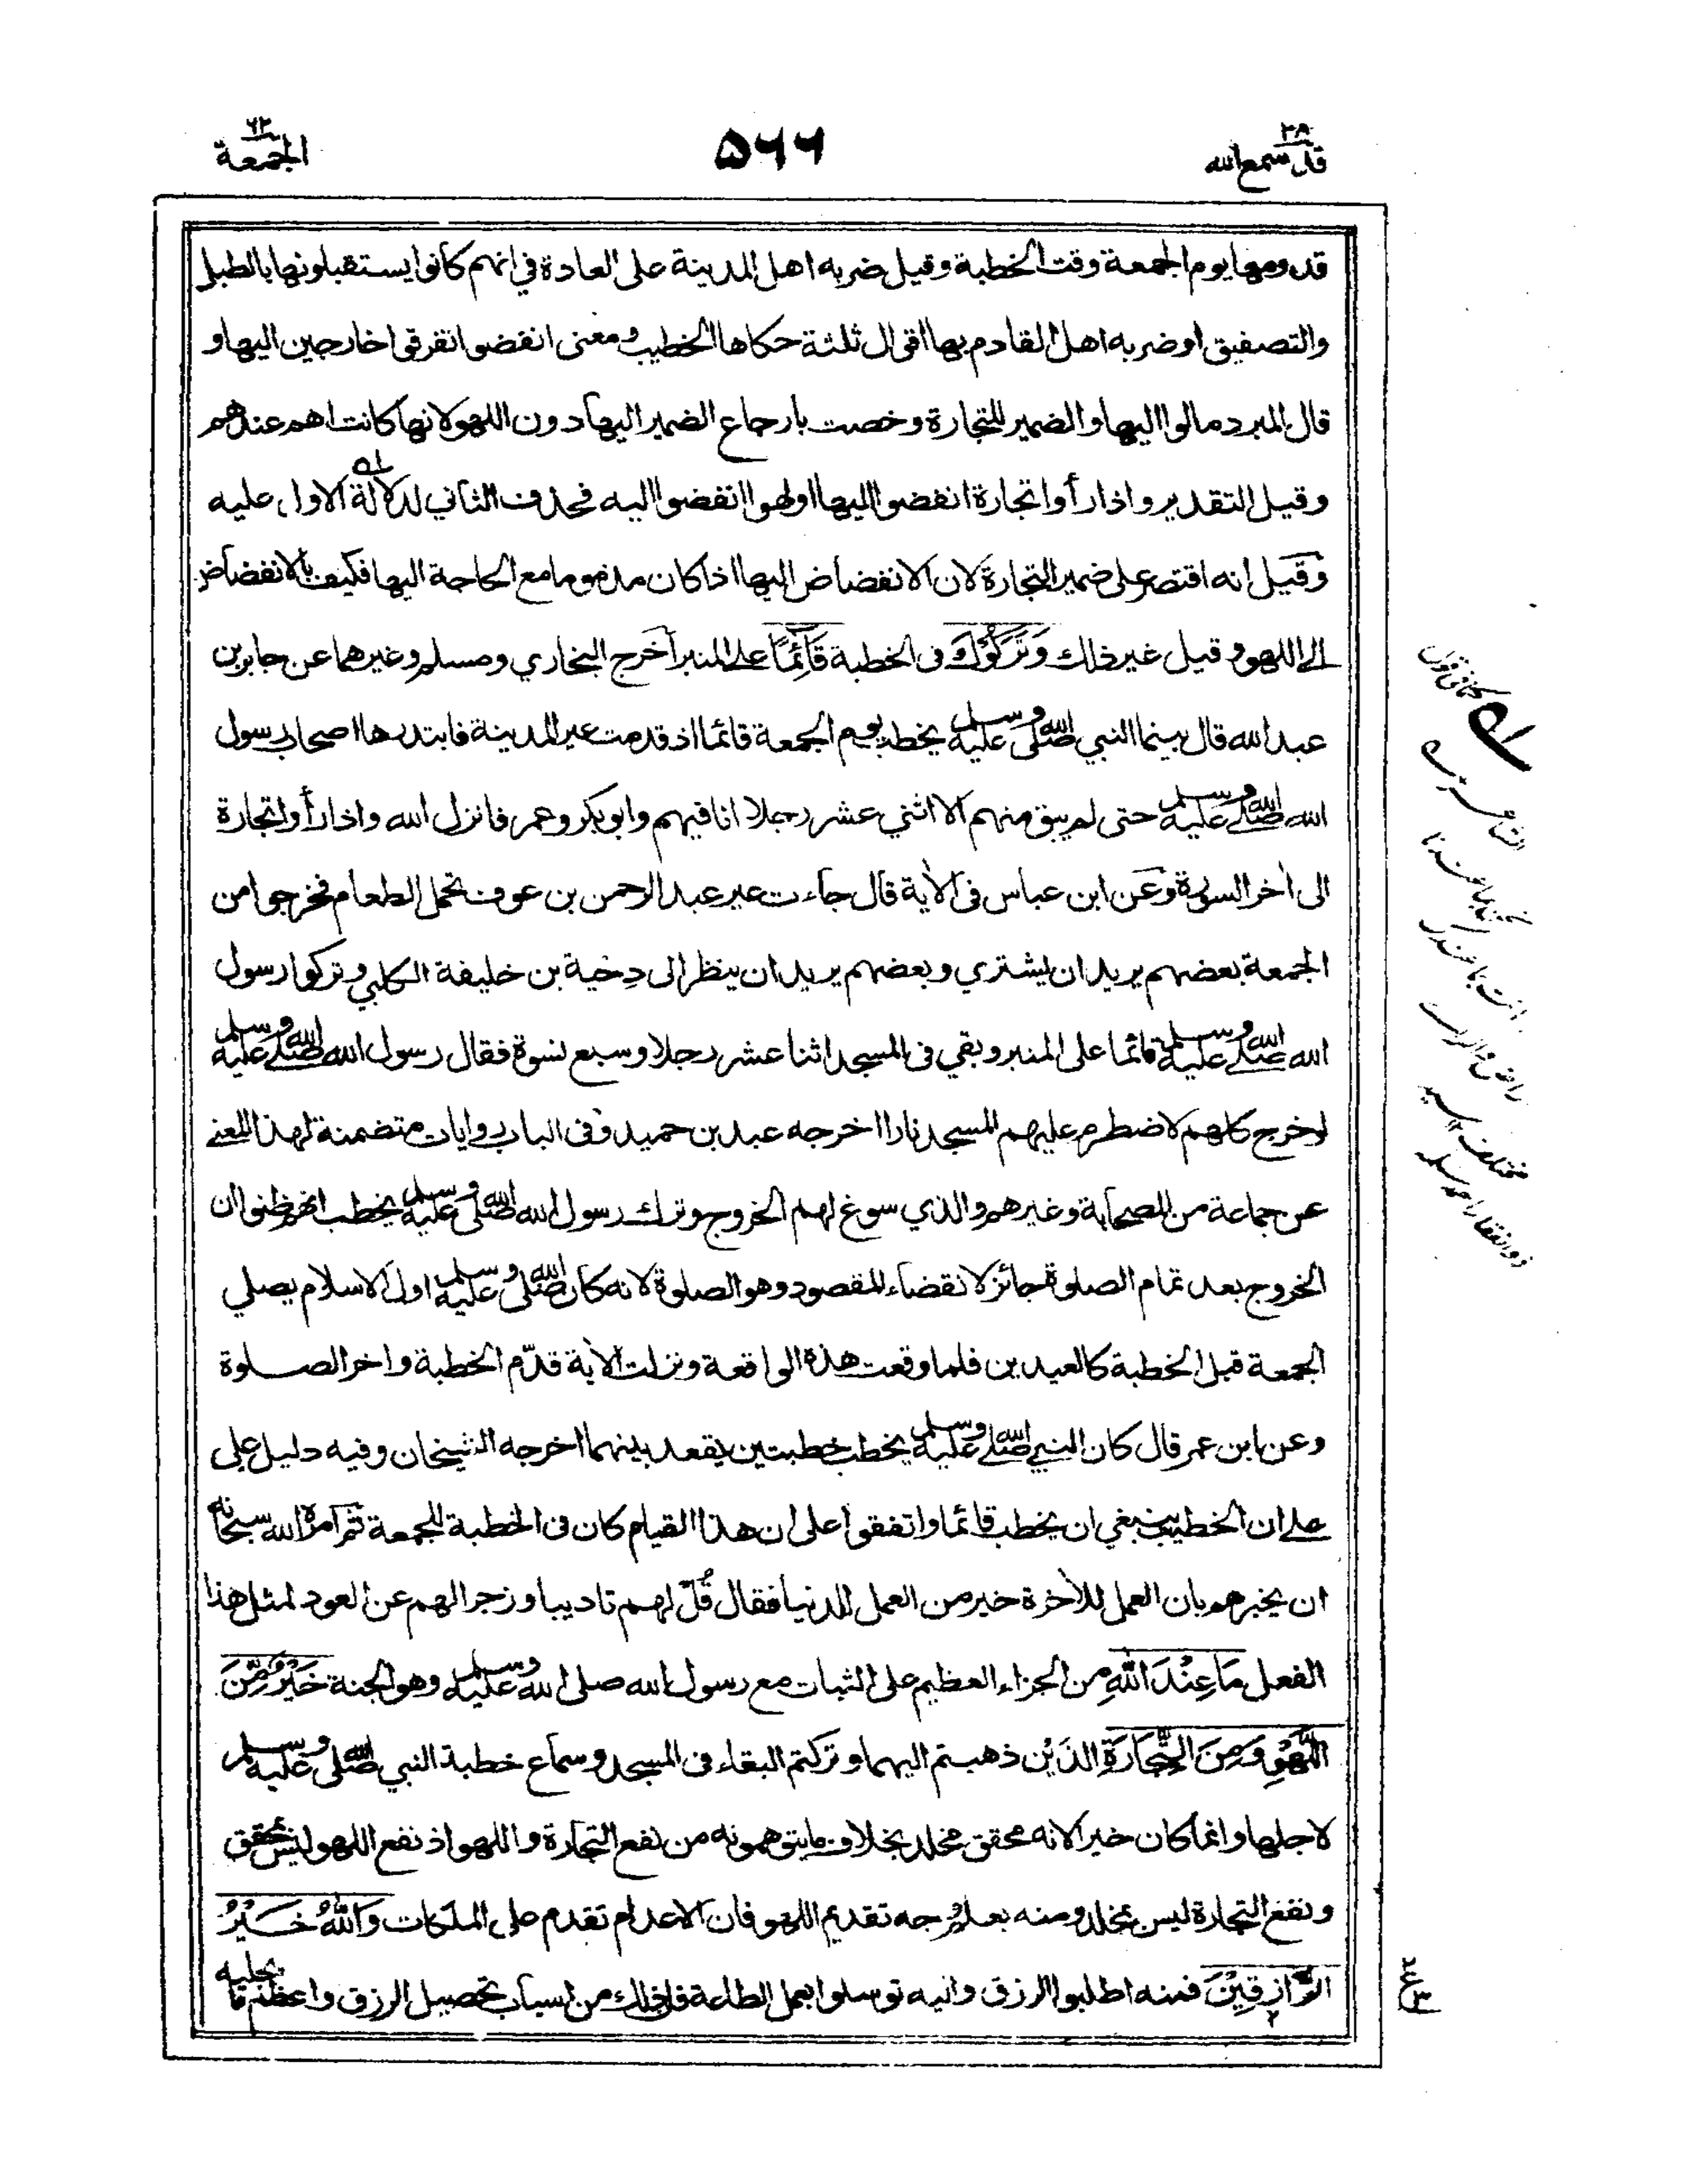 قد سمع الله ٢٨
٥٦٦
الجمعة ٦٢
قدومها يوم الجمعة وقت الخطبة وقيل ضربه اهل المدينة على العادة في انهم كانوا يستقبلونها بالطبل
والتصفيق او ضربه اهل القادم بها اقوال ثلثة حكاها الخطيب ومعنى انفضوا تفرقوا خارجين اليها و
قال المبرد مالوا اليها والضمير للتجارة وخصت بارجاع الضمير اليها دون اللهو لانها كانت اهم عندهم
وقيل التقدير واذا رأوا تجارة انفضوا اليها او لهوا انفضوا اليه فحذف الثاني لدلالة الاول عليه
وقيل انه اقتصر على ضمير التجارة لان الانفضاض اليها اذا كان مذموما مع الحاجة اليها فكيف بالانفضاض
الى اللهو وقيل غير ذلك وَتَرَكُوْكَ فى الخطبة قَائِمًا على المنبر اخرج البخاري ومسلم وغيرهما عن جابر بن
عبد الله قال بينما النبي صلى الله عليه وسلم يخطب يوم الجمعة قائما اذ قدمت عير المدينة فابتدرها اصحاب رسول
الله صلى الله عليه وسلم حتى لم يبق منهم الا اثني عشر رجلا انا فيهم وابو بكر وعمر فانزل الله واذا رأوا تجارة
الى اخر السورة وعن ابن عباس فى الأية قال جاءت عير عبد الرحمن بن عوف تحمل الطعام فخرجوا من
الجمعة بعضهم يريد ان يشتري وبعضهم يريد ان ينظر الى دحية بن خليفة الكلبي وتركوا رسول
الله صلى الله عليه وسلم قائما على المنبر وبقي فى المسجد اثنا عشر رجلا وسبع نسوة فقال رسول الله صلى الله عليه وسلم
لو خرج كلهم لاضطرم عليهم المسجد نارا اخرجه عبد بن حميد وفى الباب روايات متضمنة لهذا المعنى
عن جماعة من الصحابة وغيرهم والذي سوغ لهم الخروج وترك رسول الله صلى الله عليه وسلم يخطب انهم ظنوا ان
الخروج بعد تمام الصلوة جائز لانقضاء المقصود وهو الصلوة لانه كان صلى الله عليه وسلم اول الاسلام يصلي
الجمعة قبل الخطبة كالعيدين فلما وقعت هذه الواقعة ونزلت الأية قدّم الخطبة واخر الصلوة
وعن ابن عمر قال كان النبي صلى الله عليه وسلم يخطب خطبتين يقعد بينهما اخرجه الشيخان وفيه دليل على
على ان الخطيب ينبغي ان يخطب قائما واتفقوا على ان هذا القيام كان فى الخطبة للجمعة ثم امره الله سبحانه
ان يخبرهم بان العمل للأخرة خير من العمل للدنيا فقال قُلْ لهم تاديبا وزجرا لهم عن العود لمثل هذا
الفعل مَا عِنْدَ اللّٰهِ من الجزاء العظيم على الثبات مع رسول الله صلى الله عليه وسلم وهو الجنة خَيْرٌ مِّنَ
اللَّهْوِ وَمِنَ التِّجَارَةِ الذَيْن ذهبتم اليهما وتركتم البقاء فى المسجد وسماع خطبة النبي صلى الله عليه وسلم
لاجلها وانما كان خيرا لانه محقق مخلد بخلاف ما يتوهمونه من نفع التجارة واللهو اذ نفع اللهو ليس بمحقق
ونفع التجارة ليس بمخلد ومنه يعلم وجه تقديم اللهو فان الاعدام تقدم على الملكات وَاللّٰهُ خَيْرُ
الرَّازِقِيْنَ فمنه اطلبوا الرزق واليه توسلوا بعمل الطاعة فان ذلك من اسباب تحصيل الرزق واعظم ما يجلبه